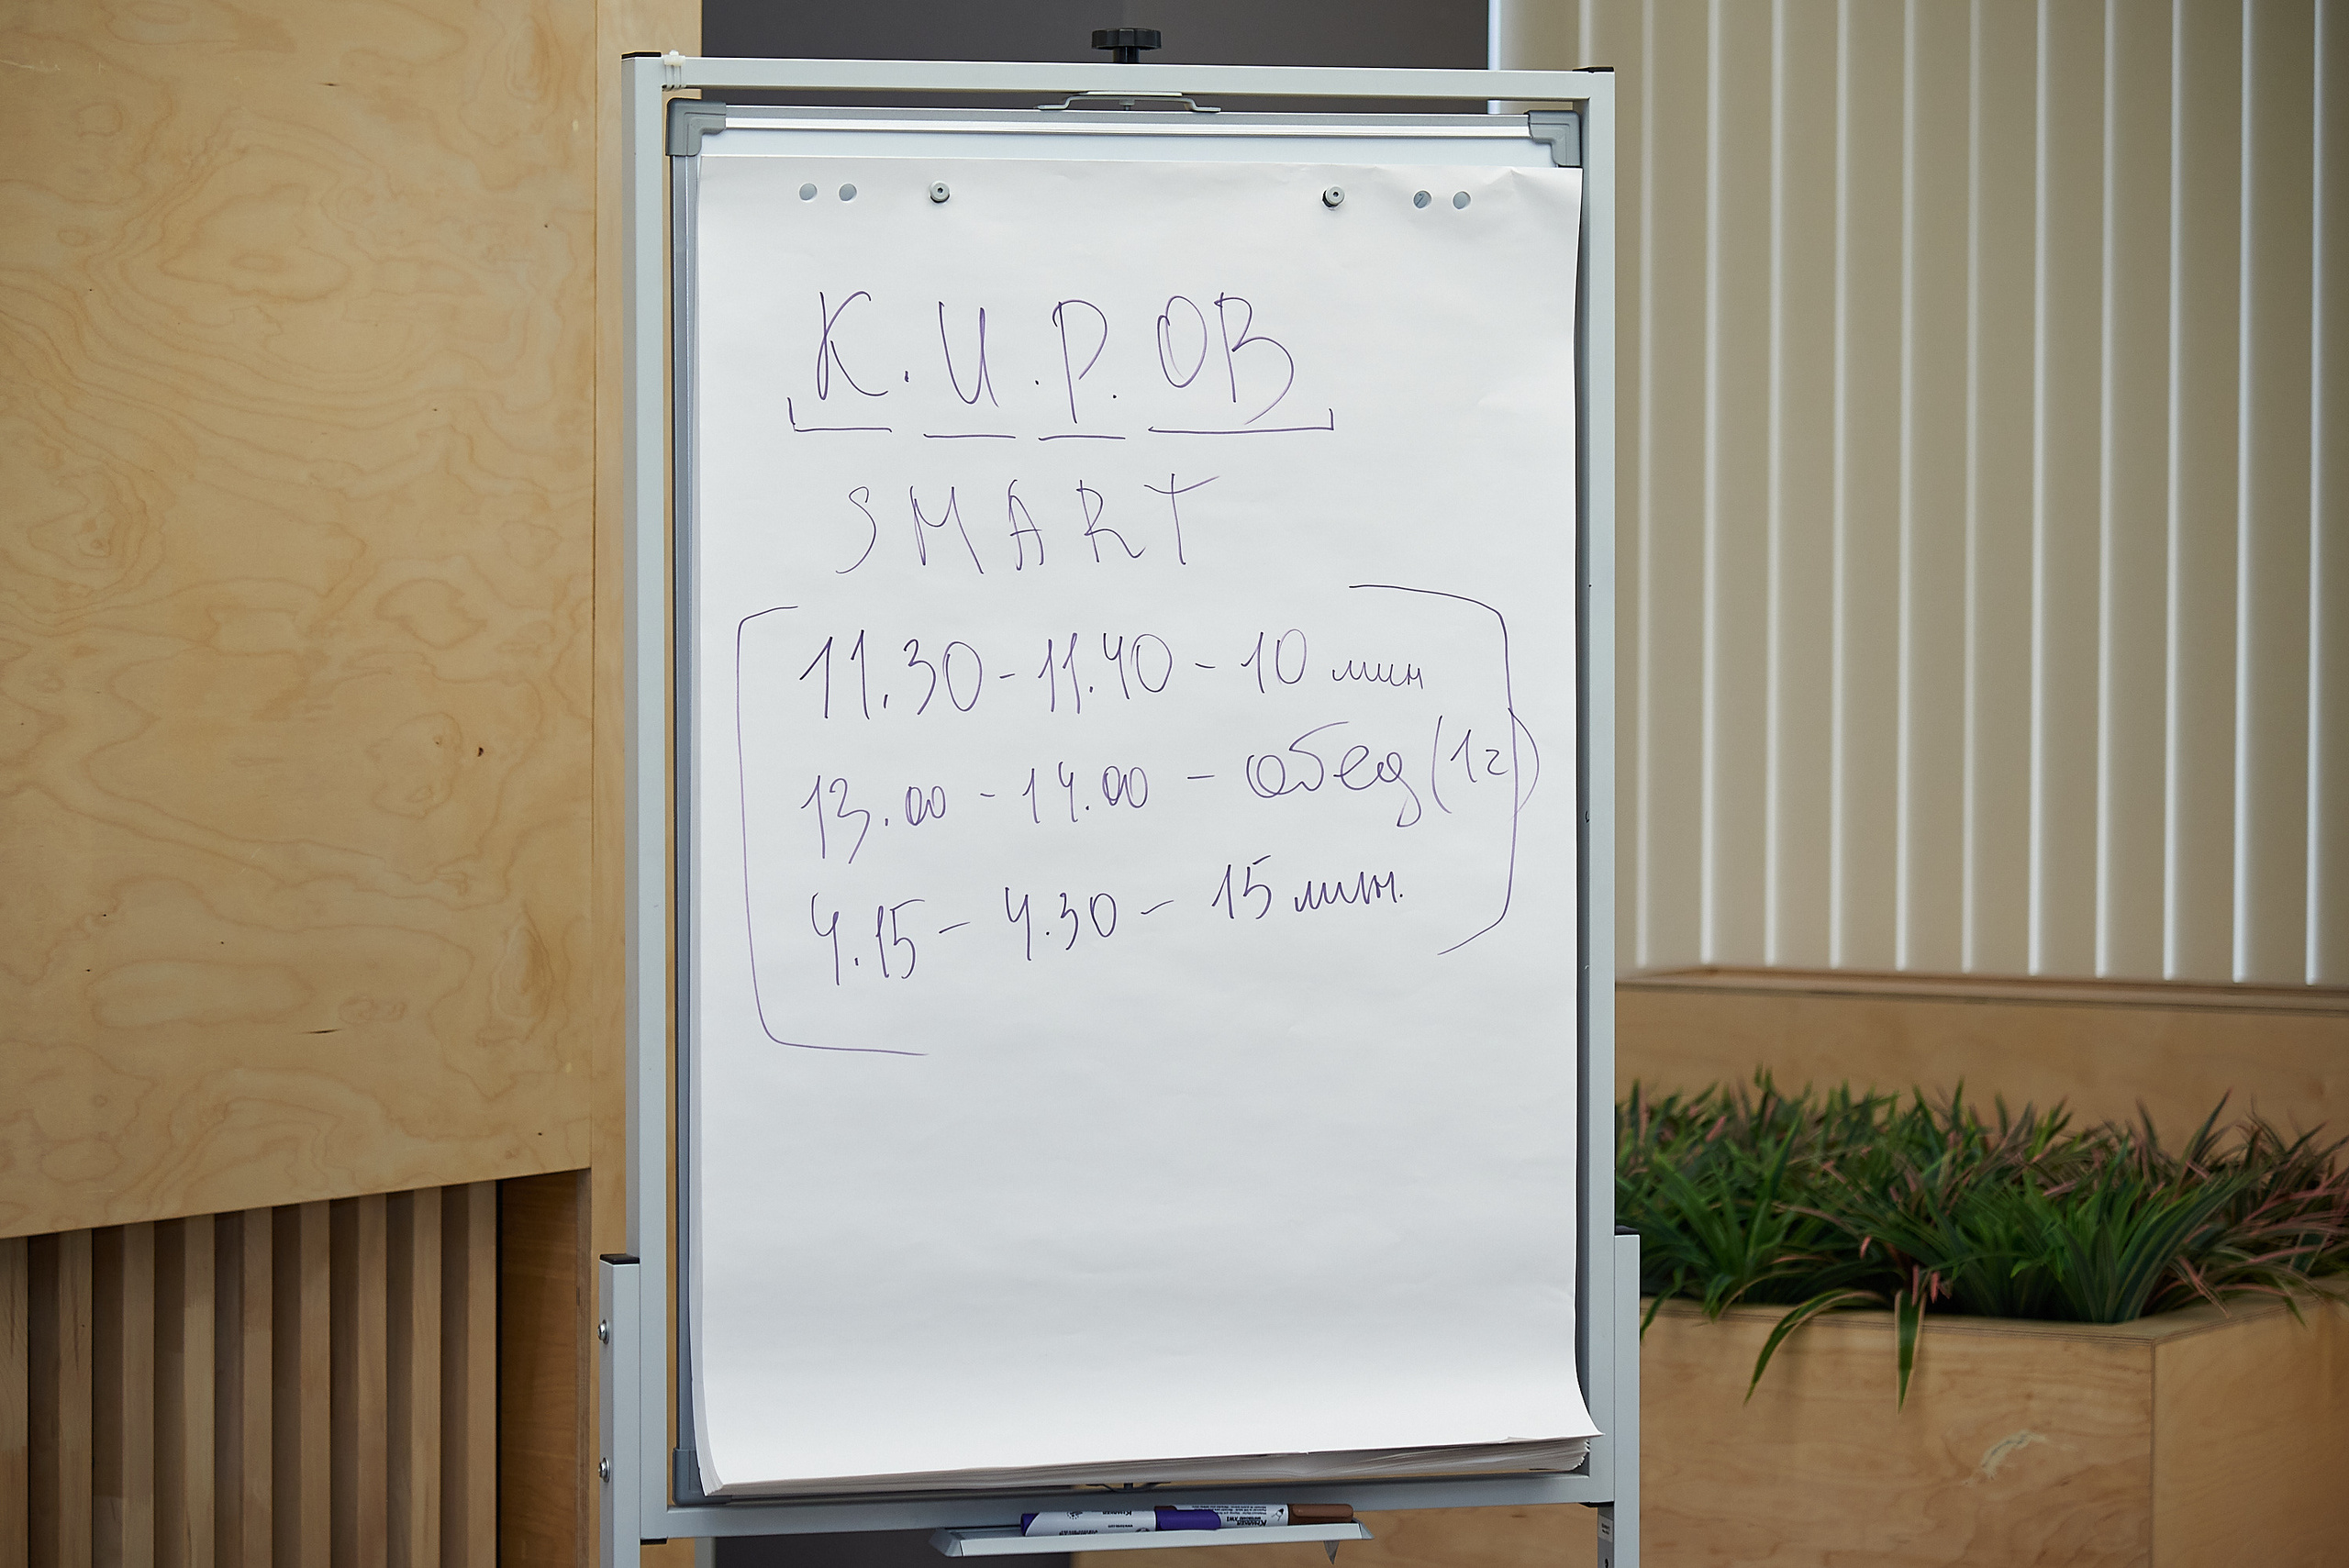 К.И.Р.ОВ
SMART
11.30 - 11.40 - 10 мин
13.00 - 14.00 - обед (1г)
4.15 - 4.30 - 15 мин.